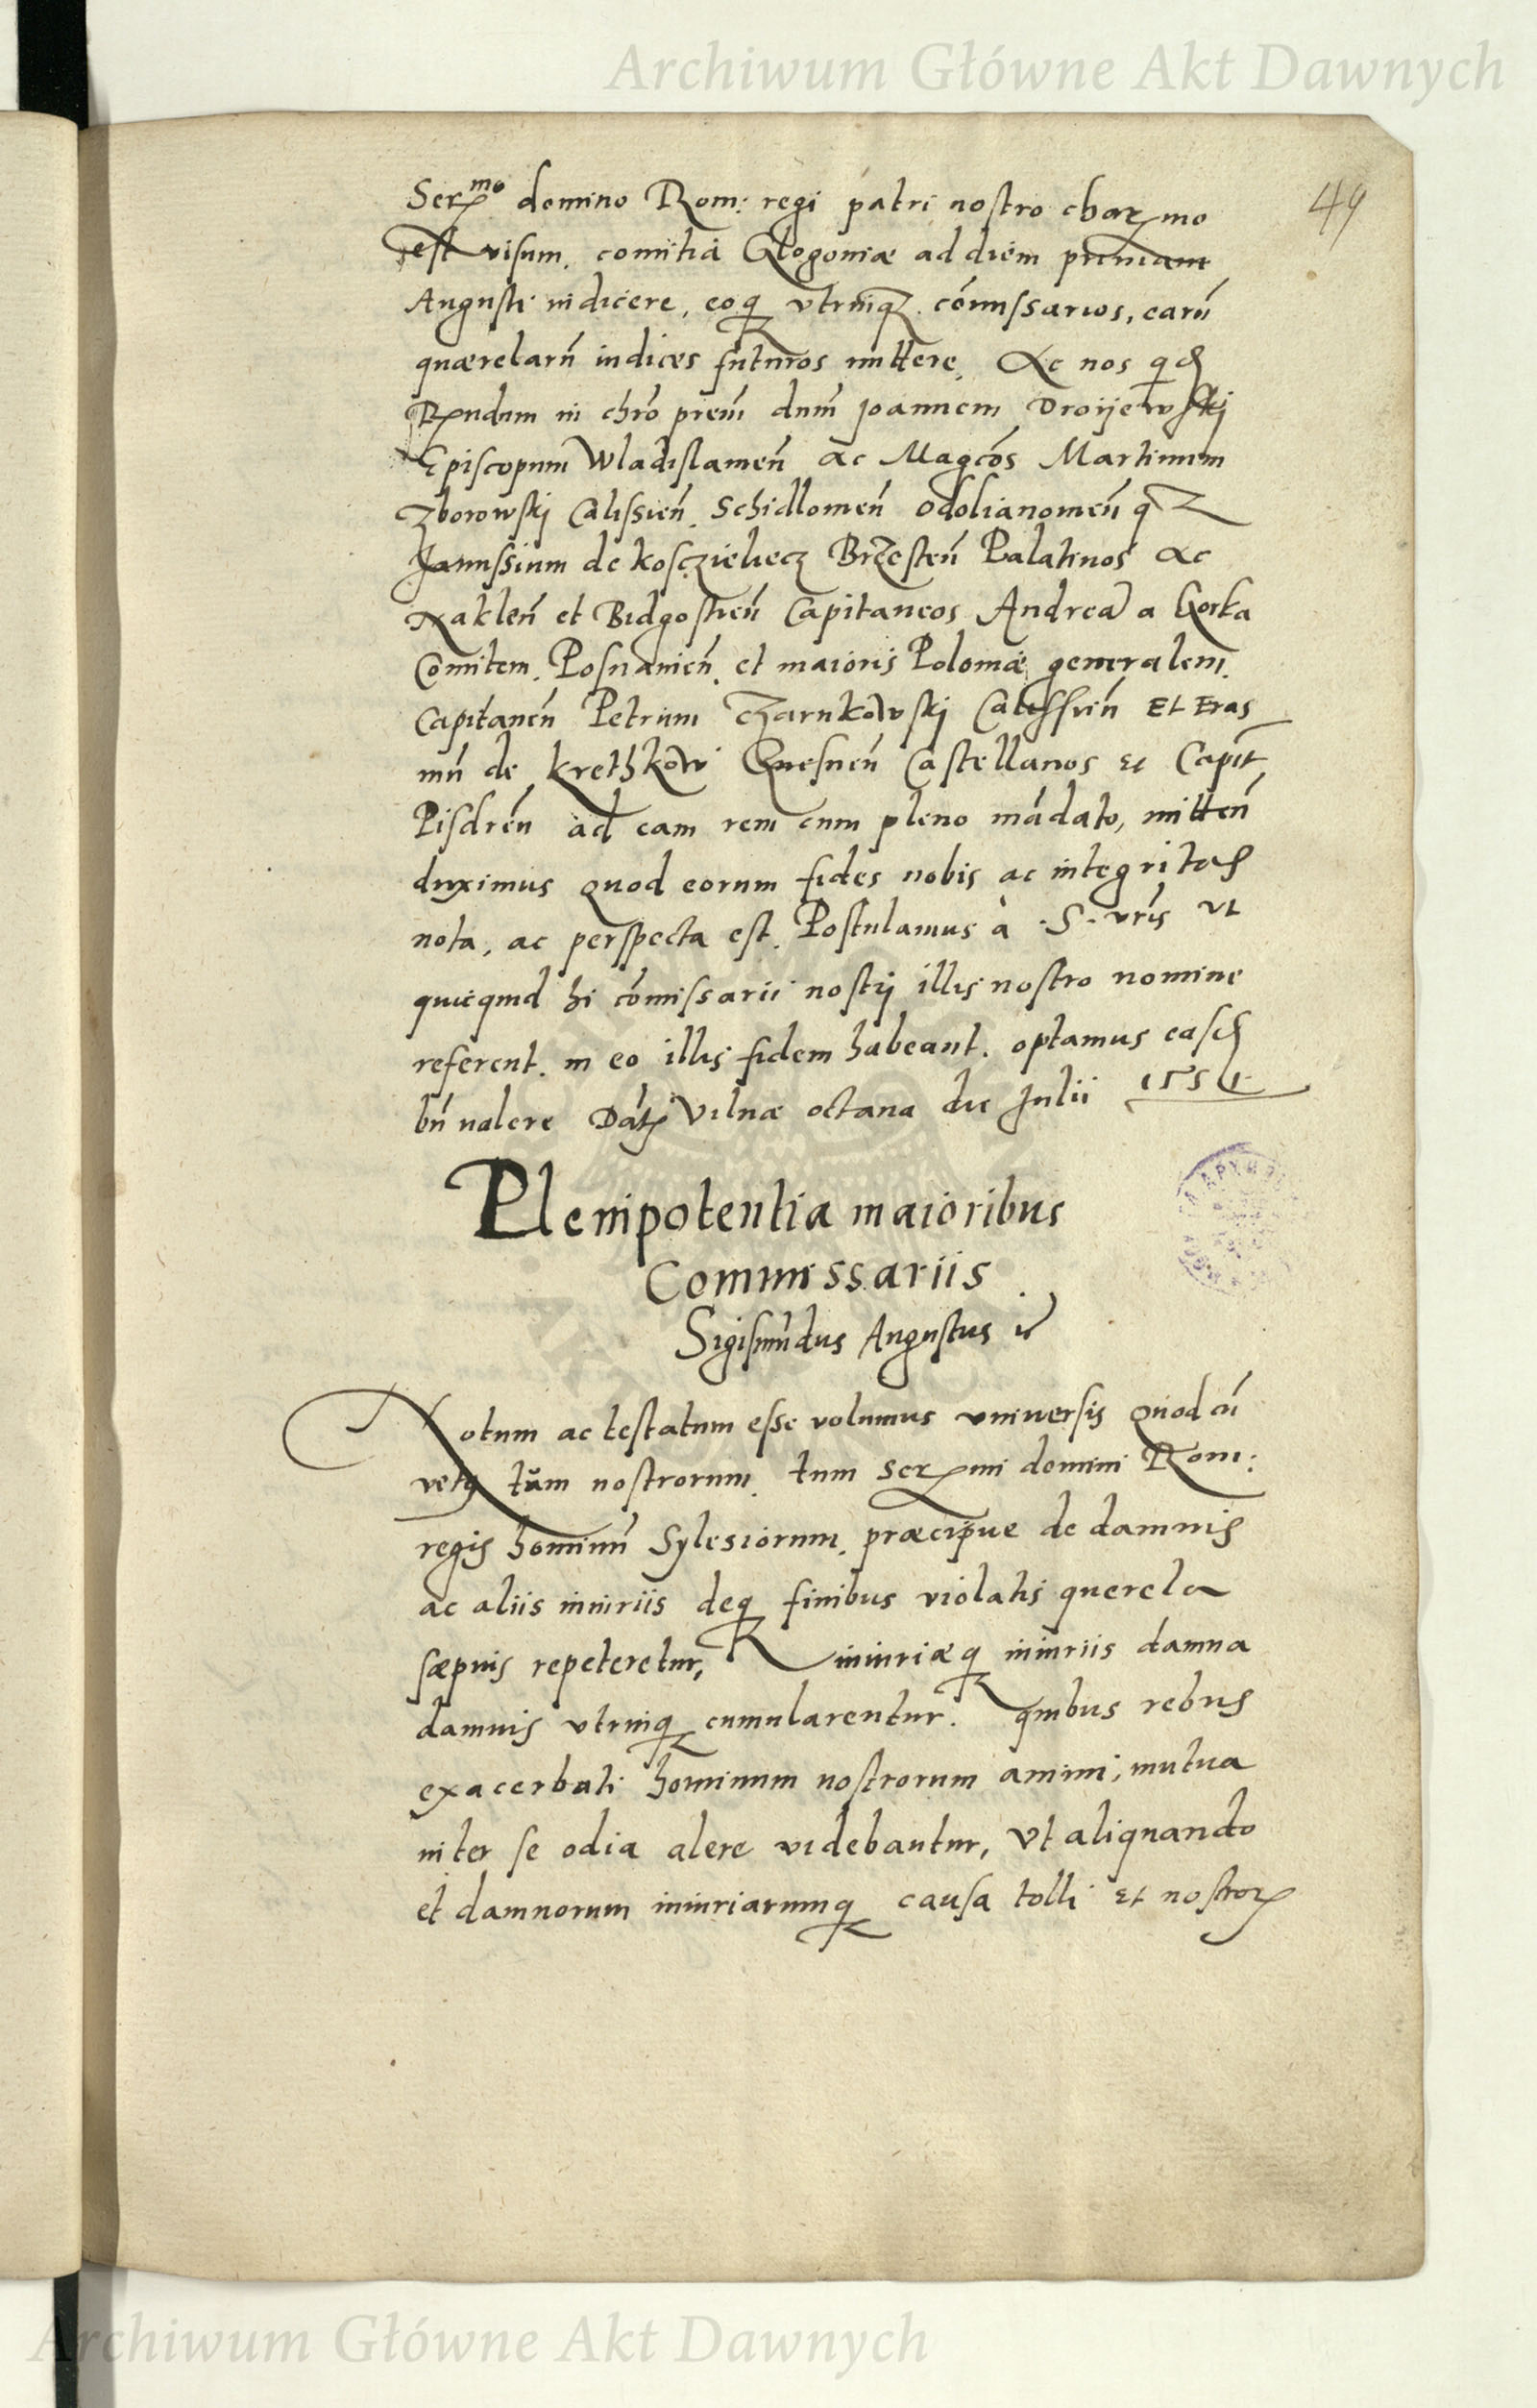 Archiwum Główne Akt Dawnych
49
Serᵐᵒ domino Rom: regi patri nostro charmo
est visum. comitia Glogoniæ ad diem primam
Augusti indicere, eoq vtrinq. cōmissarios, earū
quærelarū iudices futuros mittere. Ac nos qd
Rndum in chrō prem dnm Joannem Droijewskj
Episcopum Wladislauien̄ ac Magcos Martinum
Zborowskj Calissien̄. Schidlouien̄ Odolianouien̄ q
Janussium de kosczielecz Brzesten̄ Palatinos Ac
Naklen̄ et Bidgostien̄ Capitaneos Andreā a Gorka
Comitem. Posnanien̄. et maioris Poloniæ generalem.
Capitanen̄ Petrum Czarnkowskj Calissien̄ Et Eras
mū de krethkow Gnesnen̄ Castellanos et Capit
Pisdren̄ ad eam rem cum pleno mādato, mitten̄
duximus quod eorum fides nobis ac integritas
nota, ac perspecta est. Postulamus à .S. vris vt
quicquid hi cōmissarii nostrj illis nostro nomine
referent. in eo illis fidem habeant. optamus easd
bn̄ ualere Dat Vilnæ octaua die Julii 1554
Plenipotentia maioribus
Commissariis.
Sigismūdus Augustus
Notum ac testatum esse volumus vniuersis Quod cū
tum nostrorum. tum Sermi domini Rom:
regis hominū Sylesiorum. præcipue de damnis
ac aliis iniuriis deq finibus violatis querela
sæpius repeteretur, iniuriæq iniuriis damna
damnis vtrinq cumularentur. quibus rebus
exacerbati hominum nostrorum animi, mutua
inter se odia alere videbantur, Vt aliquando
et damnorum iniuriarumq causa tolli et nostror
Archiwum Główne Akt Dawnych